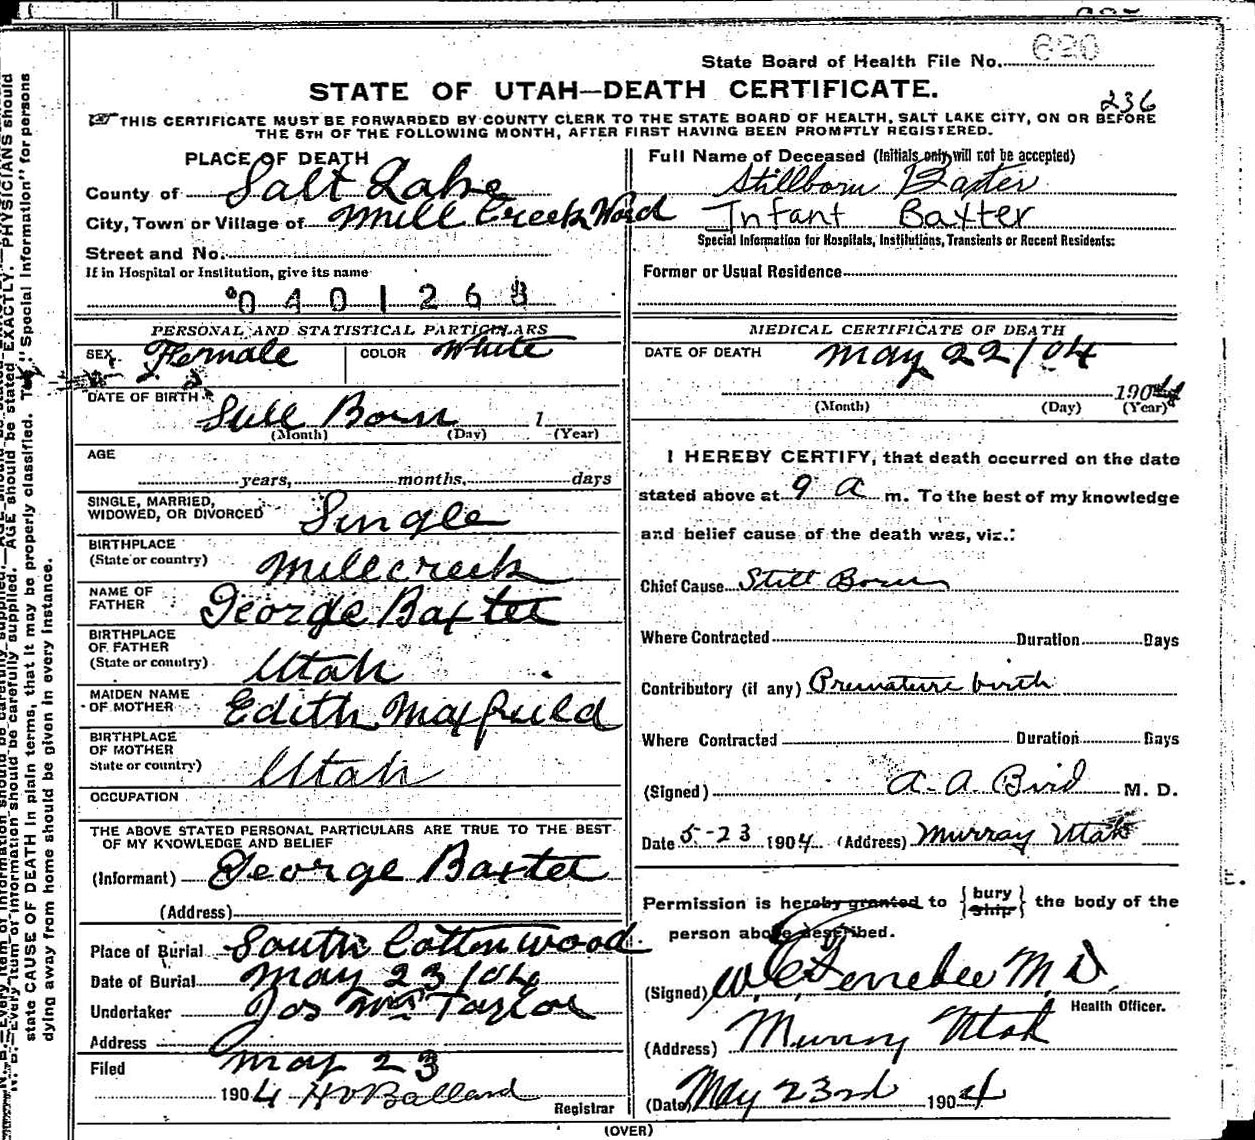 State Board of Health File No. 620
STATE OF UTAH—DEATH CERTIFICATE.
236
THIS CERTIFICATE MUST BE FORWARDED BY COUNTY CLERK TO THE STATE BOARD OF HEALTH, SALT LAKE CITY, ON OR BEFORE
THE 5TH OF THE FOLLOWING MONTH, AFTER FIRST HAVING BEEN PROMPTLY REGISTERED.
PLACE OF DEATH
County of Salt Lake
City, Town or Village of Mill Creek Ward
Street and No.
If in Hospital or Institution, give its name
0401263
Full Name of Deceased (Initials only will not be accepted)
Stillborn Baxter
Infant Baxter
Special Information for Hospitals, Institutions, Transients or Recent Residents:
Former or Usual Residence
PERSONAL AND STATISTICAL PARTICULARS
SEX Female COLOR White
DATE OF BIRTH
Still Born 1
(Month) (Day) (Year)
AGE
years, months, days
SINGLE, MARRIED,
WIDOWED, OR DIVORCED Single
BIRTHPLACE
(State or country) Millcreek
NAME OF
FATHER George Baxter
BIRTHPLACE
OF FATHER
(State or country) Utah
MAIDEN NAME
OF MOTHER Edith Maxfield
BIRTHPLACE
OF MOTHER
State or country) Utah
OCCUPATION
THE ABOVE STATED PERSONAL PARTICULARS ARE TRUE TO THE BEST
OF MY KNOWLEDGE AND BELIEF
(Informant) George Baxter
(Address)
Place of Burial South Cottonwood
Date of Burial May 23/04
Undertaker Jos Wm Taylor
Address
Filed May 23
1904 H V Ballard
Registrar
MEDICAL CERTIFICATE OF DEATH
DATE OF DEATH May 22/04
1904
(Month) (Day) (Year)
I HEREBY CERTIFY, that death occurred on the date
stated above at 9 a m. To the best of my knowledge
and belief cause of the death was, viz.:
Chief Cause Still Born
Where Contracted Duration Days
Contributory (if any) Premature birth
Where Contracted Duration Days
(Signed) A. A. Bird M. D.
Date 5-23 1904 (Address) Murray Utah
Permission is hereby granted to {bury ship} the body of the
person above described.
(Signed) M D
Health Officer.
(Address) Murray Utah
(Date) May 23rd 1904
(OVER)
state CAUSE OF DEATH in plain terms, that it may be properly classified. The "Special Information" for persons
dying away from home should be given in every instance.